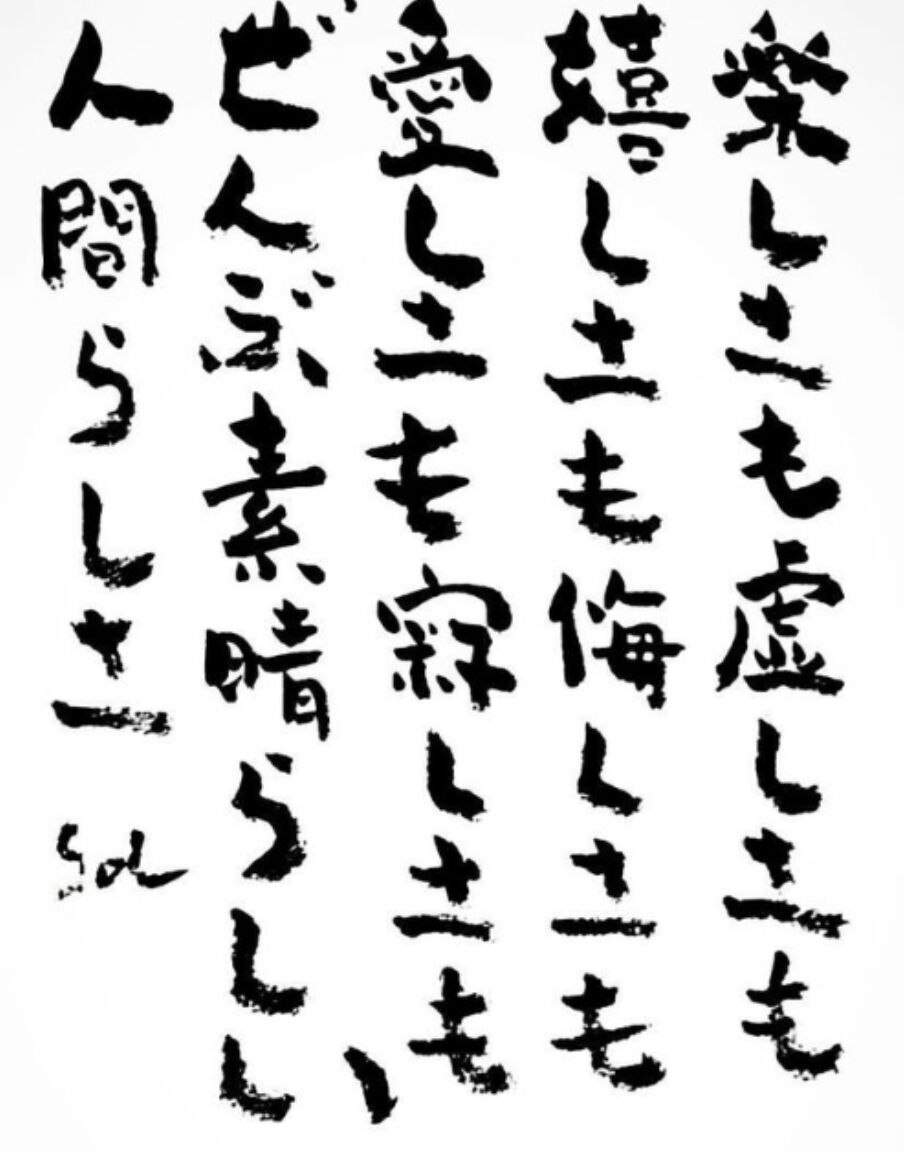 楽しさも虚しさも
嬉しさも侮しさも
愛しさも寂しさも
ぜんぶ素晴らしい
人間らしさ